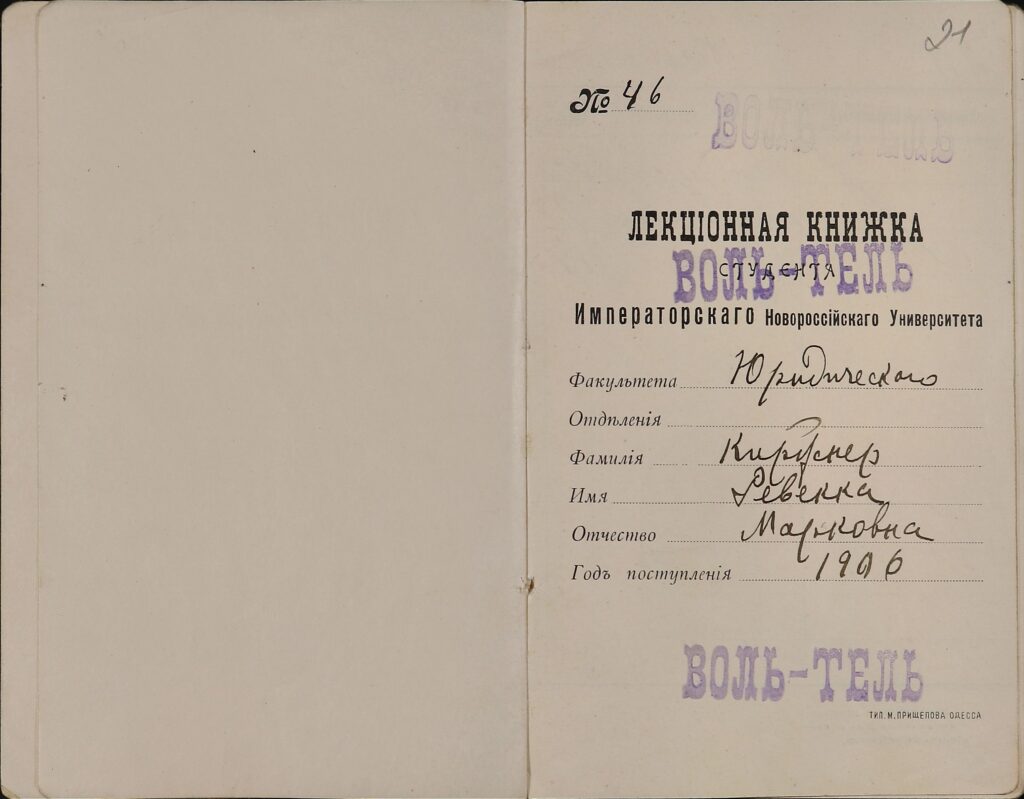 21
№ 46
ВОЛЬ-ТЕЛЬ
ЛЕКЦІОННАЯ КНИЖКА
СТУДЕНТА
ВОЛЬ-ТЕЛЬ
Императорскаго Новороссійскаго Университета
Факультета Юридическаго
Отдѣленія
Фамилія
Имя Ревекка
Отчество Марковна
Годъ поступленія 1906
ВОЛЬ-ТЕЛЬ
ТИП. М. ПРИЩЕПОВА ОДЕССА